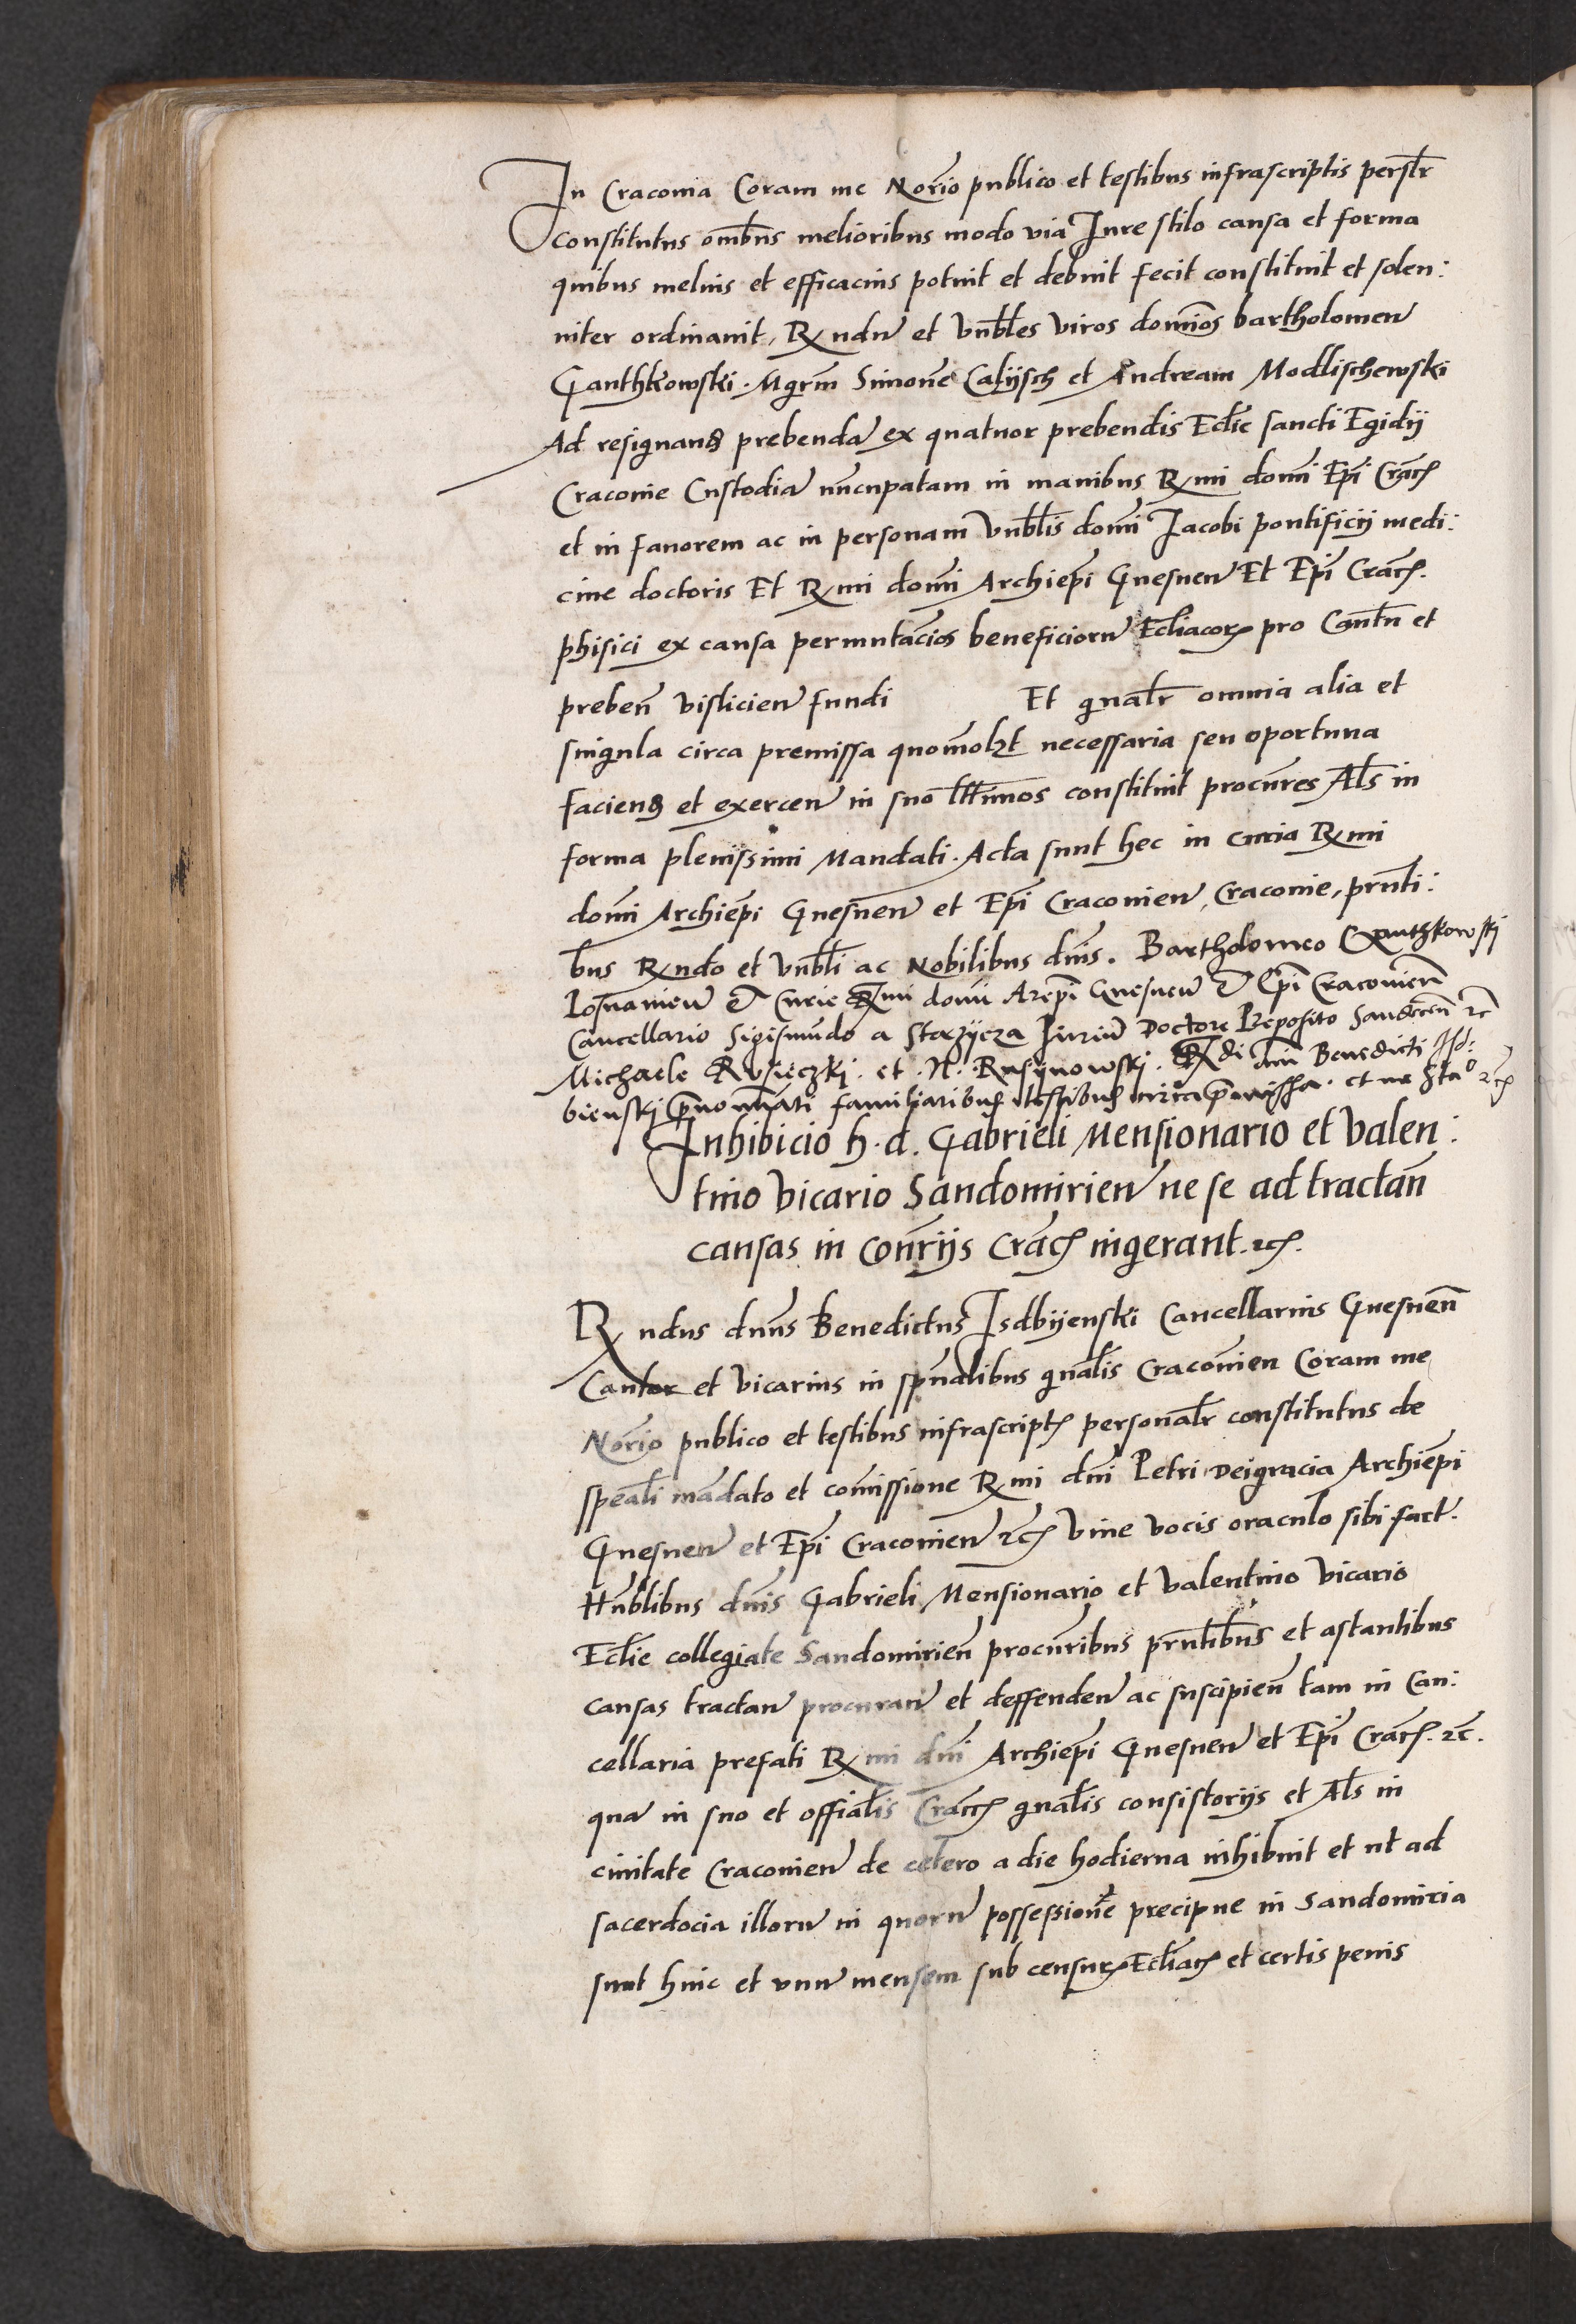 In Cracovia Coram me Norio publico et testibus infrascriptis perslr
constitutus ombus melioribus modo via Jure stilo causa et forma
quibus melius et efficacius potuit et debuit fecit constituit et solen:
niter ordinavit, Rndu et vnbles viros domios bartholomeu
Ganthkowski. Mgrm Simone Calijsch et Andream Modlischewski
Ad resignand prebenda ex quatuor prebendis Eclie sancti Egidij
Cracovie Custodia nuncupatam in manibus Rmi domi Epi Crac
et in favorem ac in personam vnblis domi Jacobi pontificij medi:
cine doctoris Et Rmi domi Archiepi Gnesnen Et Epi Crac.
phisici ex causa permutacios beneficioru Ecliacor pro Cantu et
preben vislicien fundi Et gnalr omnia alia et
singula circa premissa quomolzt necessaria seu oportuna
faciend et exercen in suo constituit procures Als in
forma plenissimi Mandati. Acta sunt hec in curia Rmi
domi Archiepi Gnesnen et Epi Cracovien, Cracovie, prnti:
bus Rndo et vnbli ac Nobilibus dnis. Bartholomeo Ganthkowski
Posnanien et Curie Rmi domi Arepi Gnesnen et Epi Cracovien
Cancellario Sigismundo a Starzijcza Juriu Doctore Preposito Sandecen rc
Michaele Rusieczkj. et. N. Rusijnowskj. Rdi dni Benedicti Jsd:
bienskj prenominati familiaribus testibus circa premissa. et me Sta° rc
Inhibicio h. d. Gabrieli Mensionario et valen:
tino vicario Sandomirien ne se ad tractan
causas in Conrijs Crac ingerant. rc.
Rndus dnus Benedictus Jsdbijenski Cancellarius Gnesnen
Cantor et vicarius in spualibus gnalis Cracovien Coram me
Norio publico et testibus infrascript personalr constitutus de
speali mandato et comissione Rmi dni Petri Deigracia Archiepi
Gnesnen et Epi Cracovien rc vive vocis oraculo sibi fact.
Hnblibus dnis Gabrieli Mensionario et valentino vicario
Eclie collegiate Sandomirien procuribus prntibus et astantibus
causas tractan procuran et deffenden ac suscipien tam in Can:
cellaria prefati Rmi dni Archiepi Gnesnen et Epi Crac. rc.
qua in suo et offialis Crac gnalis consistorijs et Als in
civitate Cracovien de cetero a die hodierna inhibuit et ut ad
sacerdocia illoru in quoru possessione precipue in Sandomiria
sunt hinc et unu mensem sub censur Ecliac et certis penis